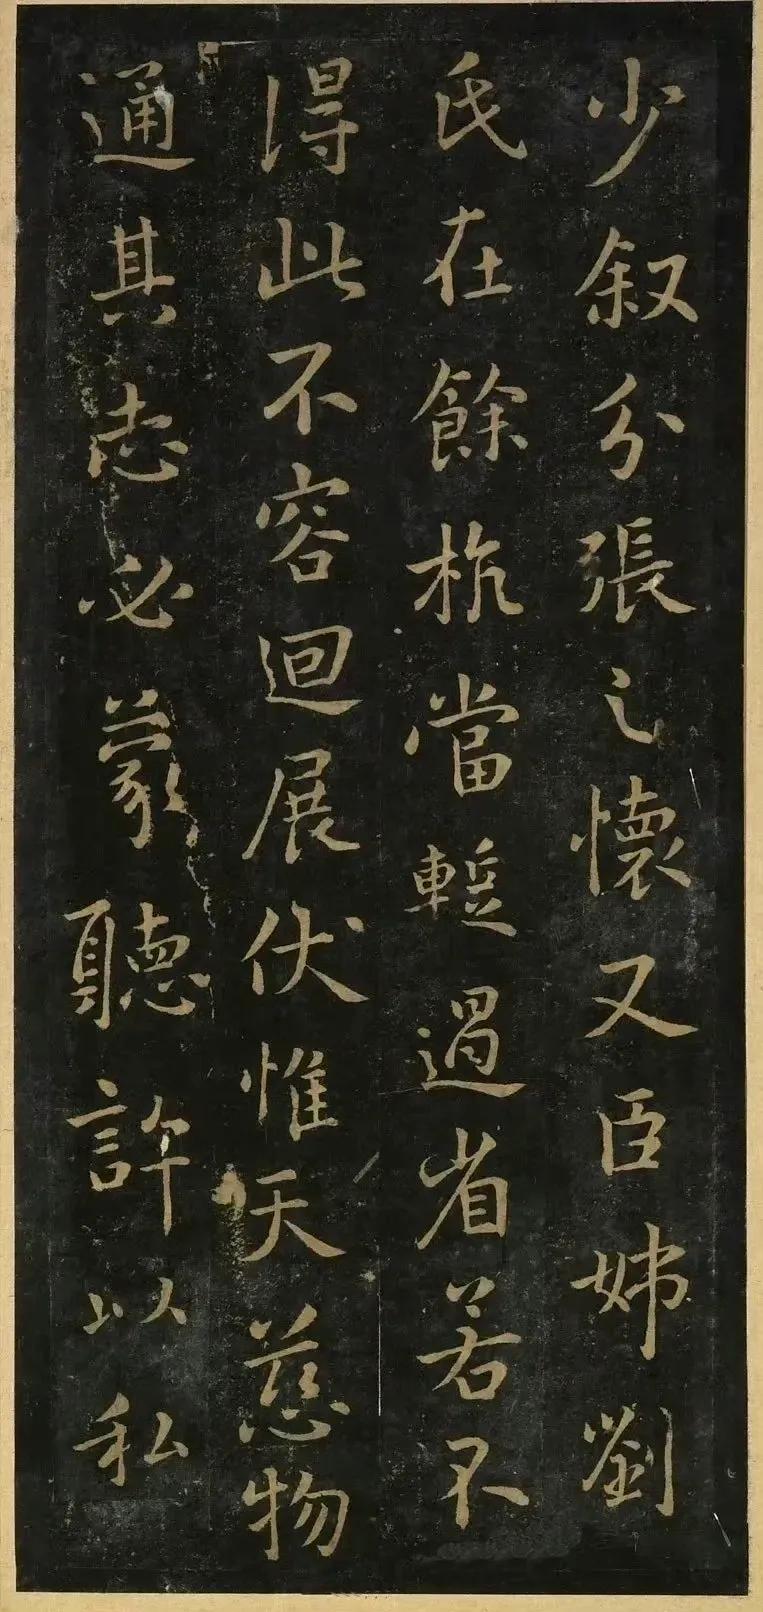 少叙分張之懷又臣姊劉
氏在餘杭當蹔過省若不
得此不容迴展伏惟天慈物
通其志必蒙聽許以私